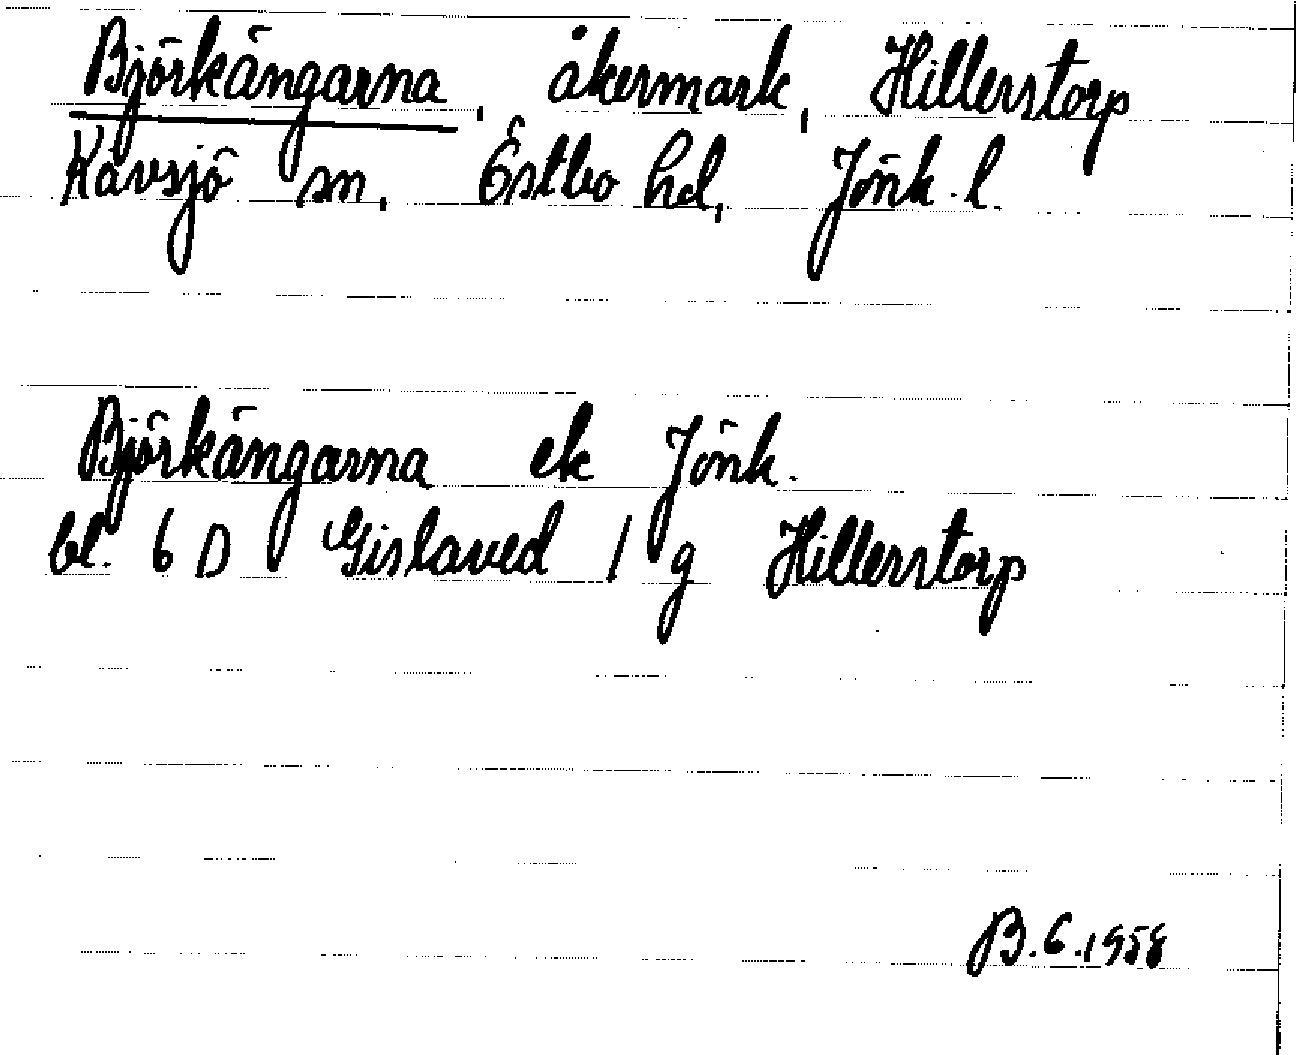 Björkängarna, åkermark, Hillerstorp
Kävsjö sn, Östbo hd, Jönk. l.
Björkängarna ek Jönk.
bl. 6 D Gislaved / g Hillerstorp
B.G.1958